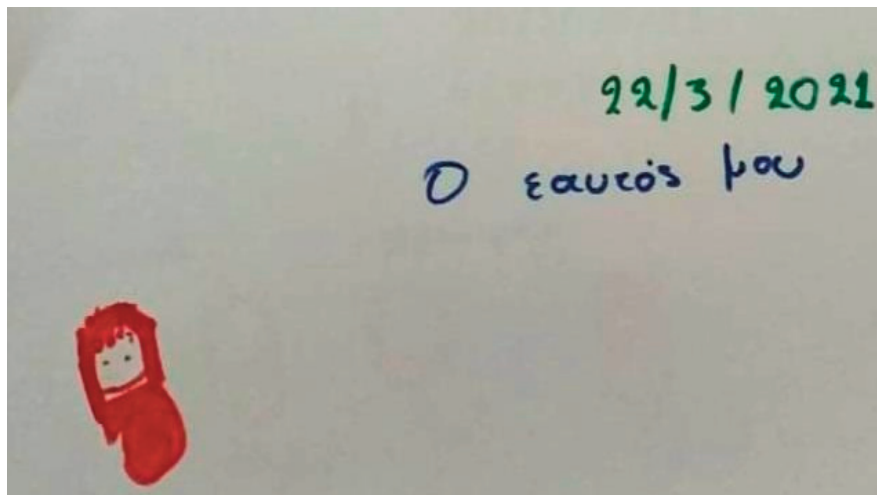 22/3/2021
Ο εαυτός μου